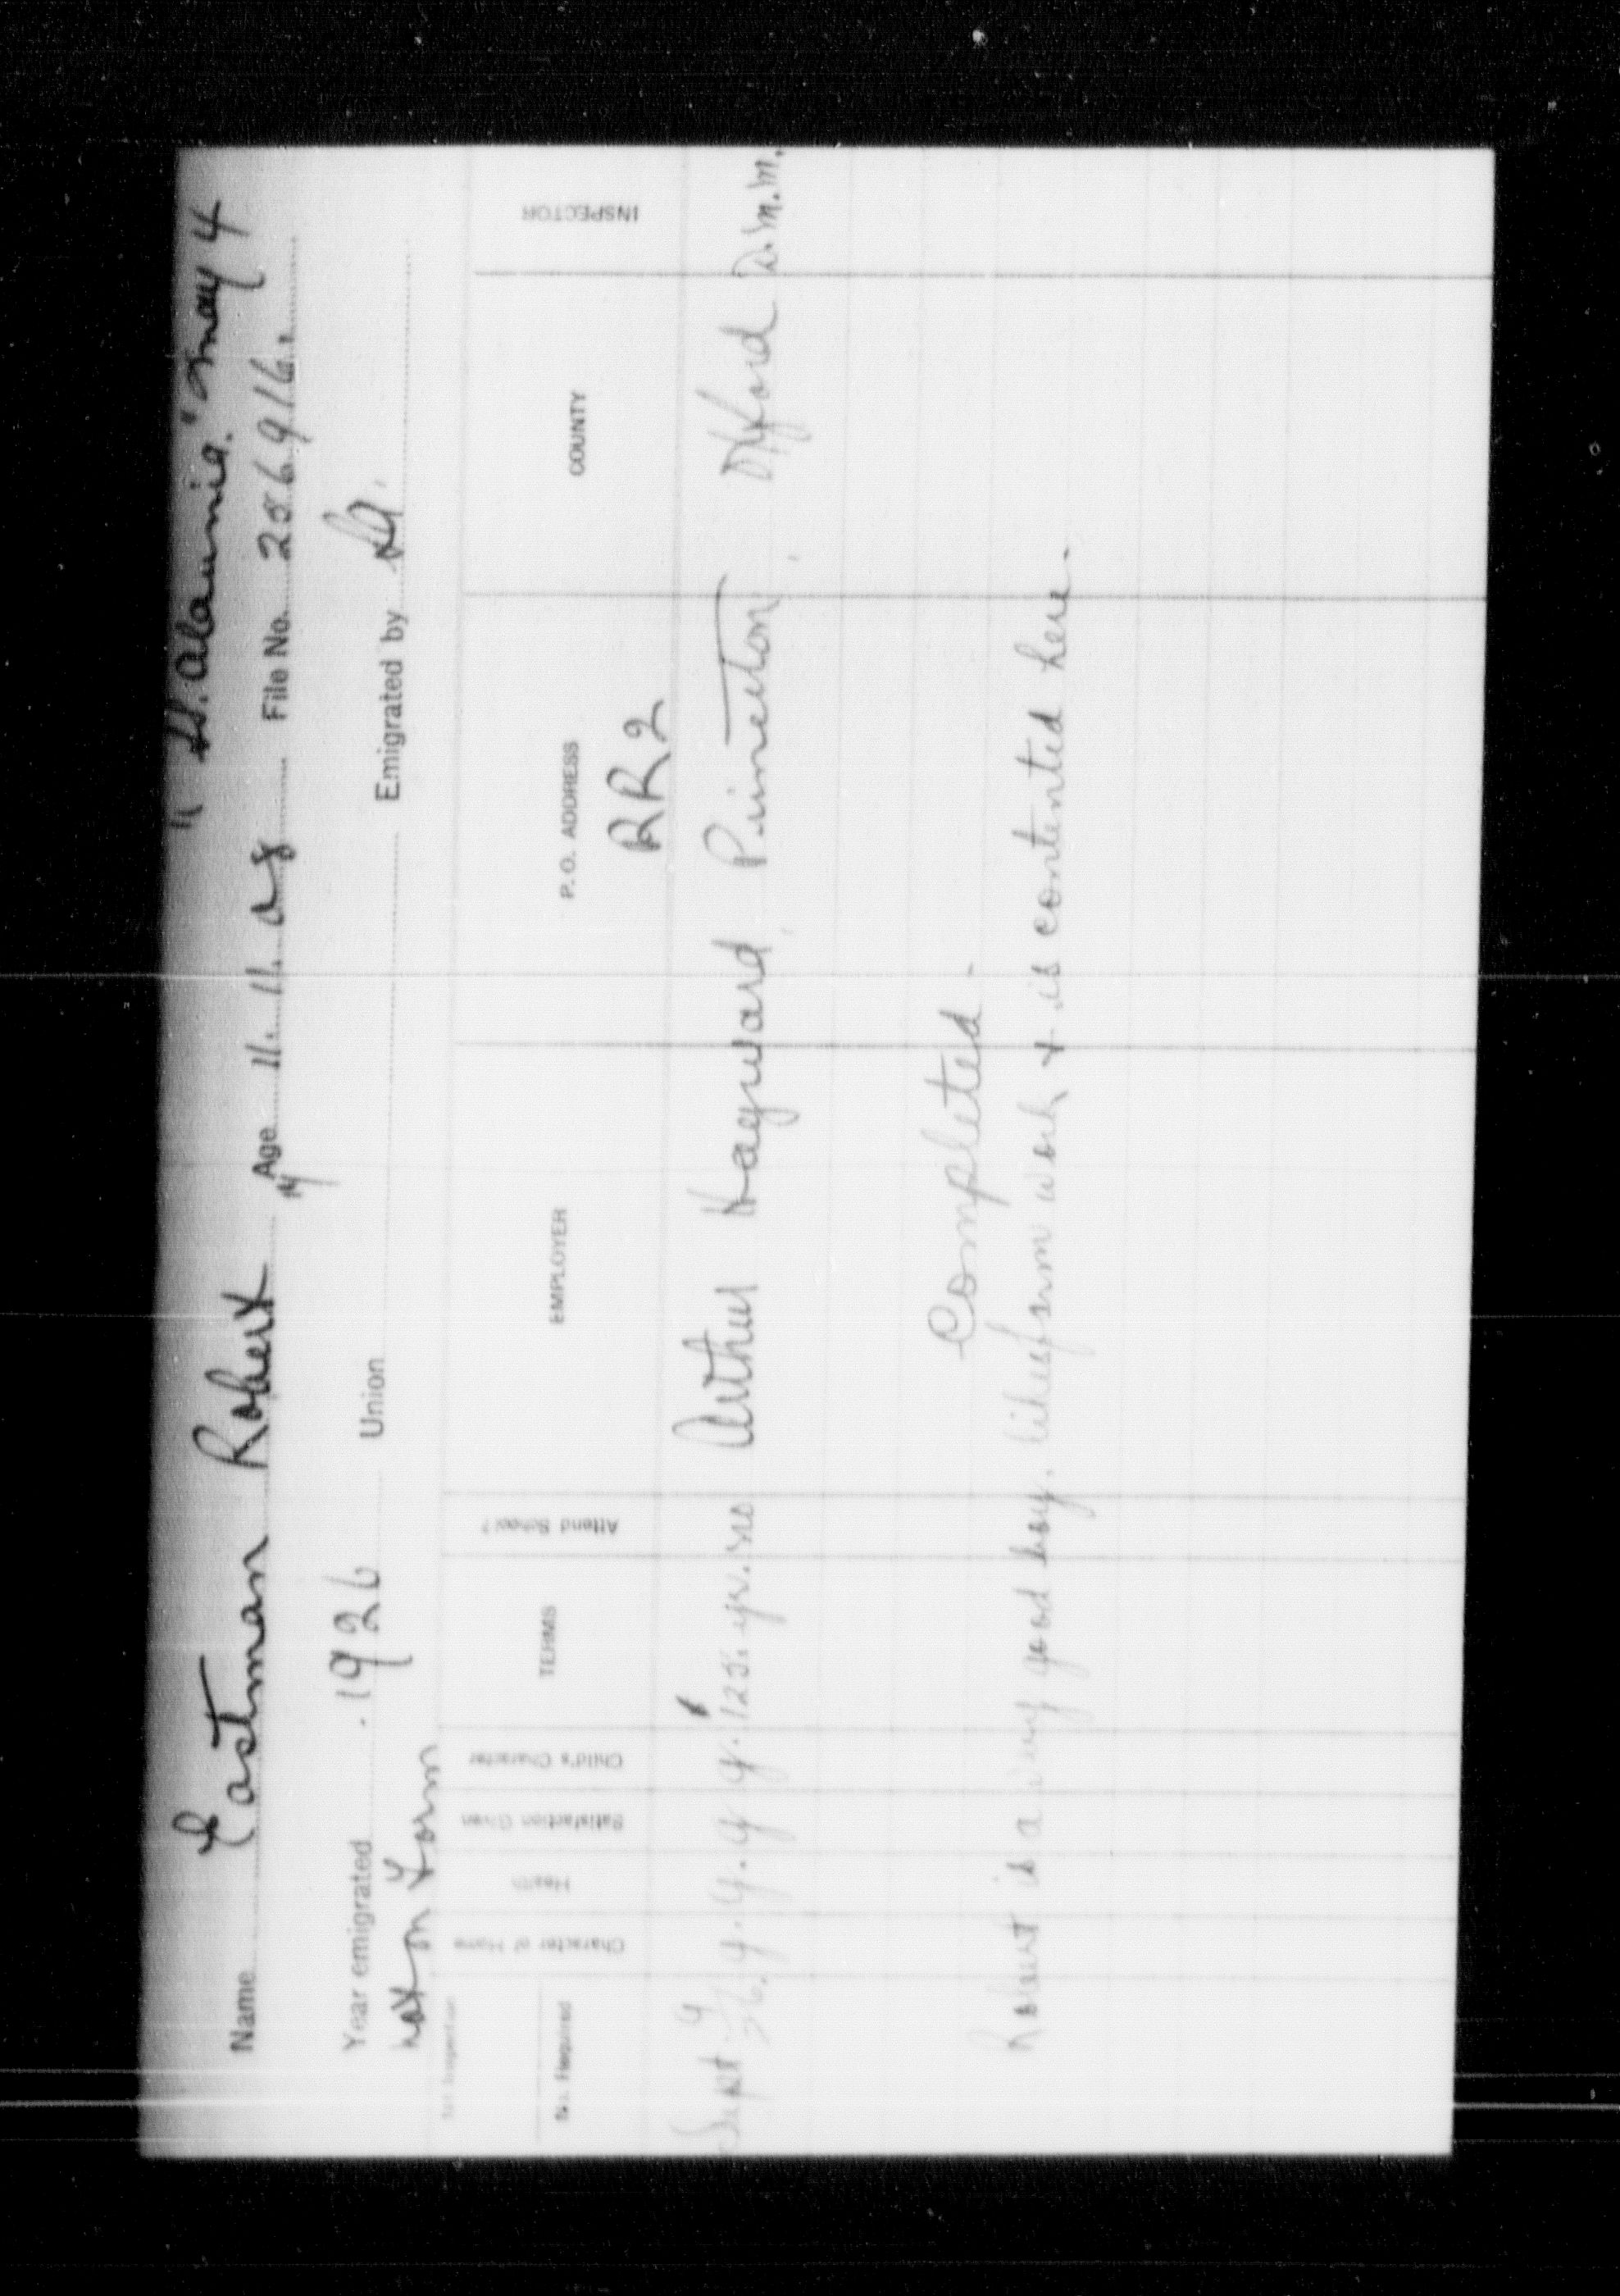 "St. Alaunia." May 4
Name Eastman Robert Age 11. 11. 08 File No. 206916.
14
Year emigrated 1926 Union Emigrated by SA.
not on Form
1st Inspection
No. Required Character of Home Health Satisfaction Given Child's Character TERMS Attend School? EMPLOYER P.O. ADDRESS COUNTY INSPECTOR
RR2
Sept 9 26. g. g. g. g. 125. yr. no Arthur Hayward, Princeton, Oxford D.M.M.
Completed.
Robert is a very good boy. likes farm work & is contented here.